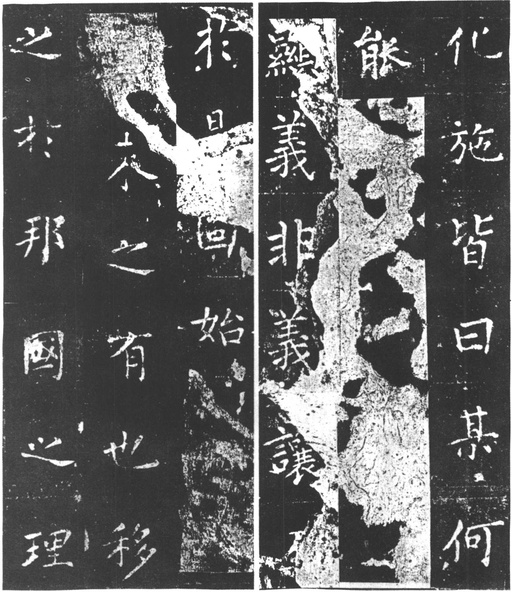 化施皆曰某何
能
義非義讓
於是回始
未之有也移
之於邦國之理